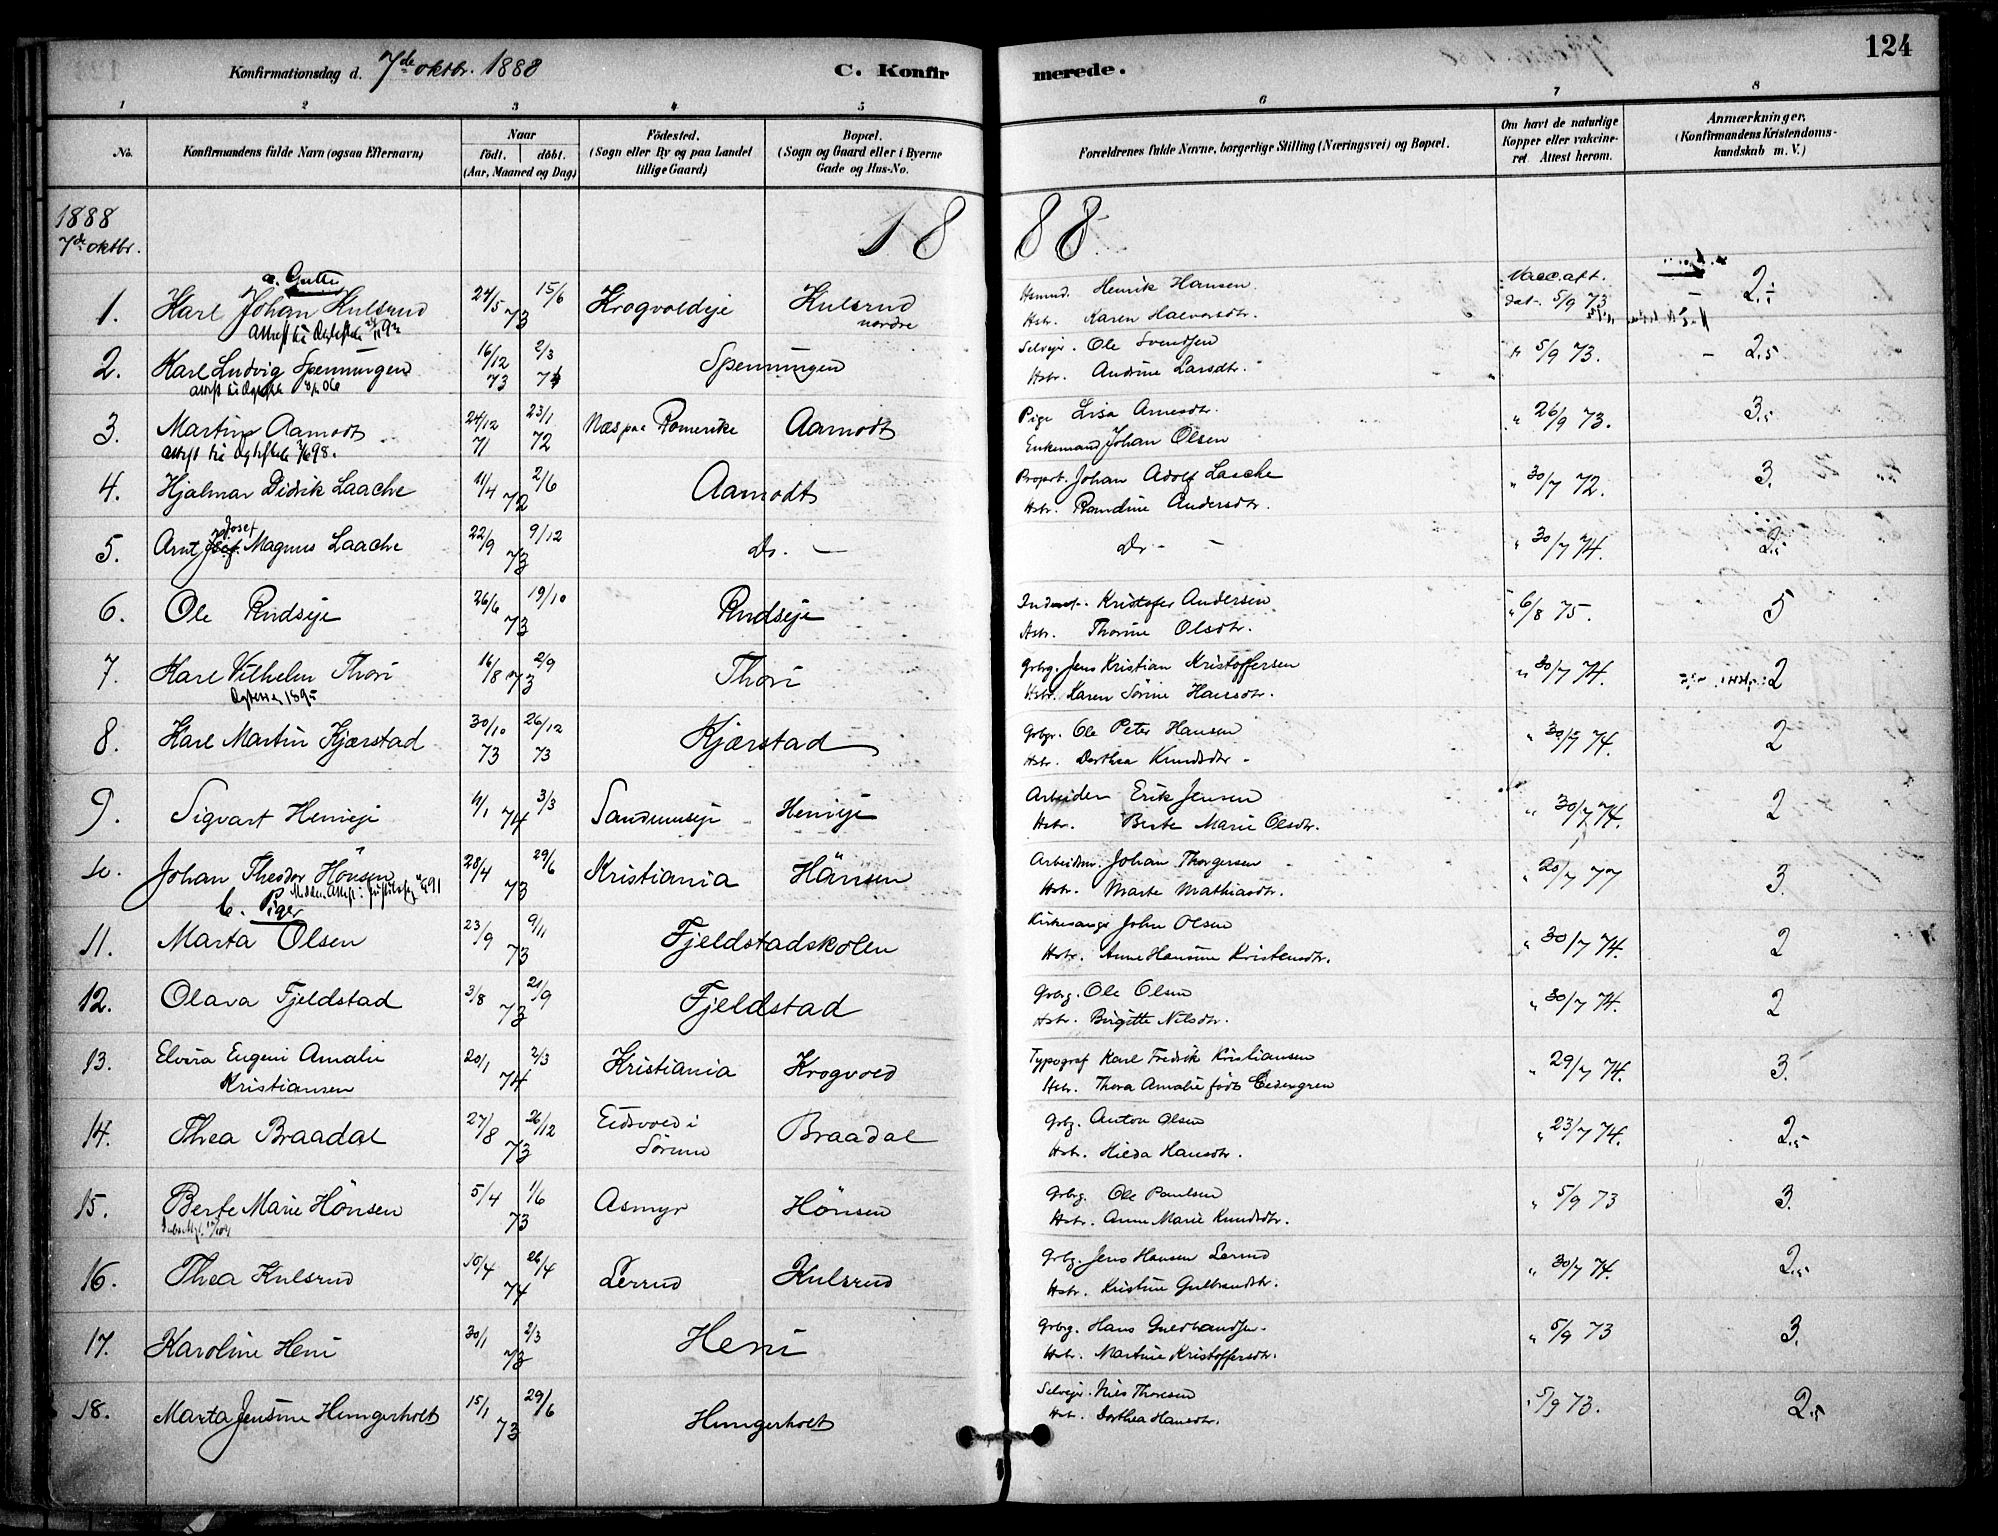 Konfirmationsdag d. 7de oktbr. 1888
C. Konfirmerede.
124
1 2 3 4 5 6 7 8
No. Konfirmandens fulde Navn (ogsaa Efternavn) Naar født. døbt. (Aar, Maaned og Dag) Fødested. (Sogn eller By og paa Landet tillige Gaard) Bopæl. (Sogn og Gaard eller i Byerne Gade og Hus-No. Forældrenes fulde Navne, borgerlige Stilling (Næringsvei) og Bopæl. Om havt de naturlige Kopper eller vakcineret Attest herom. Anmærkninger. (Konfirmandens Kristendomskundskab m. V.)
1888
7de oktbr.
18 88
a. Gutter
1. Karl Johan Kulsrud 24/5 15/6 73 Krogvoldeje Kulsrud nordre Hsmd. Henrik Hansen Vacc.att. dat. 5/9 73 2.5
Hstr. Karen Halvorsdtr.
2. Karl Ludvig Spenningen 16/12 73 2/3 74 Spenningen Selvejr. Ole Svendsen " 5/9 73. - 2.5
Hstr. Andrine Larsdtr.
3. Martin Aamodt 24/12 71 23/1 72 Næs paa Romerike Aamodt Pige Lisa Arnesdtr. " 26/9 73. 3.5
Enkemand Johan Olsen
4. Hjalmar Didrik Laache 11/4 2/6 72 Aamodt Propr. Johan Adolf Laache " 30/7 72. 3.
Hstr. Randine Andersdtr.
5. Arnt Josef Magnus Laache 22/9 9/12 73 Do. - Do - " 30/7 74. 2.5
6. Ole Rudseje 26/6 19/10 73 Rudseje Inderst. Kristofer Andersen " 6/8 75. 5
Hstr. Thorine Olsdtr.
7. Karl Vilhelm Thori 16/8 2/9 73 Thori Grbrg. Jens Kristian Kristoffersen " 30/7 74. 2
Hstr. Karen Sørine Hansdtr.
8. Karl Martin Kjærstad 30/10 73 26/12 73 Kjærstad Grbgr. Ole Peter Hansen " 30/7 74. 2
Hstr. Dorthea Knudsdtr.
9. Sigvart Henieje 11/1 3/3 74 Sandumseje Henieje Arbeider Erik Jensen " 30/7 74. 2
Hstr. Berte Marie Olsdtr.
10. Johan Theodor Hönsen 28/4 29/6 73 Kristiania Hönsen Arbeidsm. Johan Thorgersen " 20/7 77 3.
Hstr. Marte Mathiasdtr.
b. Piger
11. Marta Olsen 23/9 9/11 73 Fjeldstadskolen Kirkesanger John Olsen " 30/7 74. 2
Hstr. Anne Hansine Kristensdtr.
12. Olava Fjeldstad 3/8 21/9 73 Fjeldstad Grbrg. Ole Olsen " 30/7 74. 2
Hstr. Birgitte Nilsdtr.
13. Elvira Eugeni Amalie Kristiansen 20/1 2/3 74 Kristiania Krogvold Typograf Karl Fredrik Kristiansen " 29/7 74. 3.
Hstr. Thora Amalie født Cedergren
14. Thea Braadal 27/8 26/12 73 Eidsvold i Sörum Braadal Grbg. Anton Olsen " 23/7 74. 2.5
Hstr. Hilda Hansdtr.
15. Berte Marie Hönsen 5/4 1/6 73 Asmyr Hönsen Grbrg. Ole Paulsen " 5/9 73 3.
Hstr. Anne Marie Knudsdtr.
16. Thea Kulsrud 10/4 26/4 74 Lerrud Kulsrud Grbg. Jens Hansen Lerrud " 30/7 74. 2.5
Hstr. Kristine Gulbrandsdtr.
17. Karoline Heni 30/1 2/3 73 Heni Grbrg. Hans Guldbrandsen " 5/9 73 3.
Hstr. Martine Kristoffersdtr.
18. Marta Jensine Hungerholt 15/1 29/6 73 Hungerholt Selvejr. Nils Thoresen " 5/9 73. 2.5
Hst. Dorthea Hansdtr.